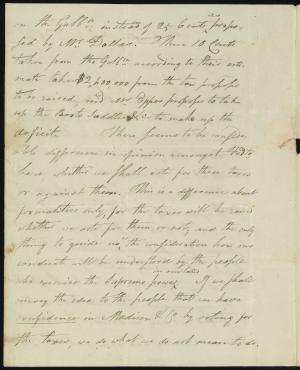 on the Gall.n instead of 25 Cents as propo-
sed by Mr. Dallas. These 10 Cents
taken from the Gall.n according to their esti-
mate takes $2,400.000 from the tax proposed
to be raised, and Mr Eppes proposes to take
up the Boots Saddles &c to make up the
deficite. There seems to be consider-
able difference in opinion amongst Feds
here whether we shall vote for these taxes
or against them. This is a difference about
formalities only, for the taxes will be raised
whether we vote for them or not, and the only
thing to guide us, the consideration how our
conduct will be understood by the people
who exercise the supreme power. If we shall
convey the idea to the people that we have
confidence in Madison & Co. by voting for
the taxes, we do what we do not mean to do.